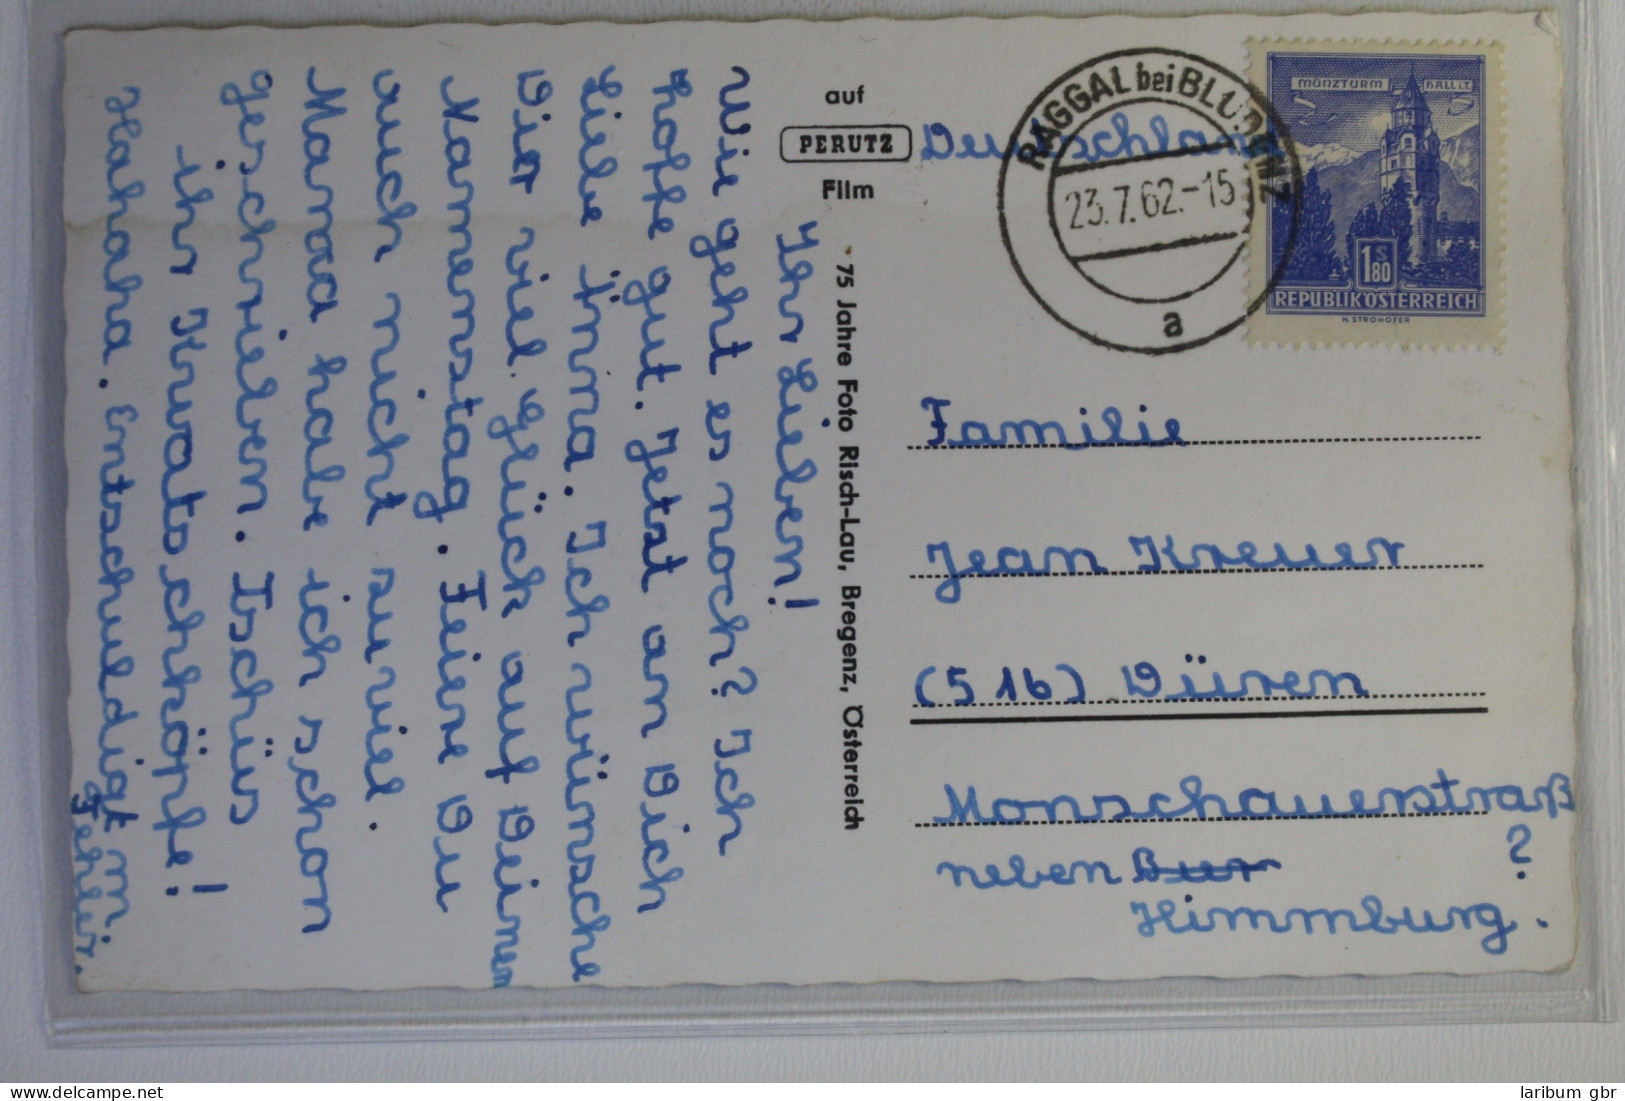 Ihr Lieben!
Wie geht es noch? Ich
hoffe gut. Jetst an Dich
liebe Anna. Ich wünsche
Dir viel Glück auf Deinen
Namenstag. Feiere Du
auch nicht su viel.
Mama habe ich schon
geschrieben. Tschüs
ihr Kwatschköpfe!
Hahaha. Entschuldigt m
Fehler.
auf
PERUTZ
Film
75 Jahre Foto Risch-Lau, Bregenz, Österreich
Deutschland
RAGGAL bei BLUDENZ
23.7.62.-15
a
MÜNZTURM HALL i.T.
1 S 80
REPUBLIK ÖSTERREICH
H. STROHOFER
Familie
Jean Kreuer
(516) Düren
Monschauerstraß
neben Bur ?
Himmburg.
delcampe.net
laribum gbr